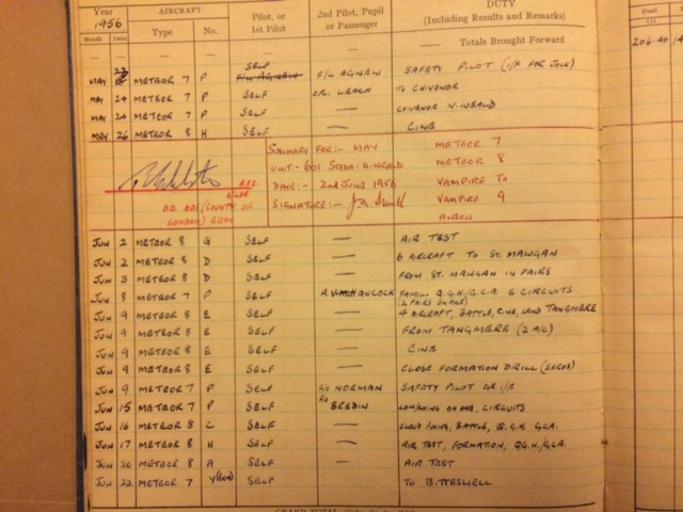 Year 1956 AIRCRAFT Pilot, or 1st Pilot 2nd Pilot, Pupil or Passenger DUTY (Including Results and Remarks) Dual
Month Date Type No. (1)
— — — — — — Totals Brought Forward 206.40
MAY 23 METEOR 7 P SELF F/L AGNEW F/L AGNEW SAFETY PILOT (I/F FOR JOCK)
MAY 24 METEOR 7 P SELF CPL. LEACH TO CHIVENOR
MAY 24 METEOR 7 P SELF — CHIVENOR N. WEALD
MAY 26 METEOR 8 H SELF — CINE
SUMMARY FOR:- MAY METEOR 7
UNIT:- 601 SQDN. N. WEALD METEOR 8
DATE:- 2ND JUNE 1956 VAMPIRE
SIGNATURE:- VAMPIRE 9
O.C. 601 (COUNTY OF
LONDON) SQDN
JUN 2 METEOR 8 G SELF — AIR TEST
JUN 2 METEOR 8 D SELF — 6 AIRCRAFT TO ST. MAWGAN
JUN 3 METEOR 8 D SELF — FROM ST. MAWGAN IN PAIRS
JUN 8 METEOR 7 P SELF HANCOCK Q.G.H./G.C.A. & CIRCUITS
JUN 9 METEOR 8 E SELF — 4 AIRCRAFT, BATTLE, CINE, LAND TANGMERE
JUN 9 METEOR 8 E SELF — FROM TANGMERE (2 A/C)
JUN 9 METEOR 8 E SELF — CINE
JUN 9 METEOR 8 E SELF — CLOSE FORMATION DRILL
JUN 9 METEOR 7 P SELF NORMAN SAFETY PILOT FOR I/F
JUN 15 METEOR 7 P SELF BREDIN ON ONE, CIRCUITS
JUN 16 METEOR 8 C SELF — BATTLE, Q.G.H. GCA.
JUN 17 METEOR 8 H SELF — AIR TEST, FORMATION, QGH./GCA.
JUN 20 METEOR 8 A SELF — AIR TEST
JUN 22 METEOR 7 SELF TO B.